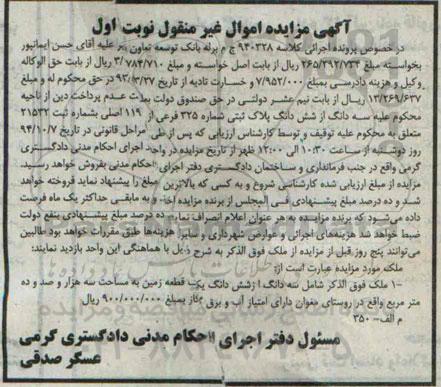 آگهی مزایده اموال غیر منقول نوبت اول
در خصوص پرونده اجرائی کلاسه ۹۴۰۳۲۸ ج م برله بانک توسعه تعاون بر علیه آقای حسن ایمانپور
بخواسته مبلغ ۲۶۵/۲۹۲/۷۳۴ ریال از بابت اصل خواسته و مبلغ ۳/۷۸۴/۷۱۰ ریال از بابت حق الوکاله
وکیل و هزینه دادرسی بمبلغ ۷/۹۵۲/۰۰۰ و خسارت تادیه از تاریخ ۹۳/۳/۳۷ در حق محکوم له و مبلغ
۱۳/۲۶۹/۶۳۷ ریال از بابت نیم عشر دولتی در حق صندوق دولت بعلت عدم پرداخت دین از ناحیه
محکوم علیه سه دانگ از شش دانگ پلاک ثبتی شماره ۳۲۵ فرعی از ۱۱۹ اصلی بشماره ثبت ۲۱۵۳۲
متعلق به محکوم علیه توقیف و توسط کارشناس ارزیابی که پس از طی مراحل قانونی در تاریخ ۹۴/۱۰/۷
روز دوشنبه از ساعت ۱۰:۳۰ الی ۱۲:۰۰ ظهر از تاریخ مزایده در واحد اجرای احکام مدنی دادگستری
گرمی واقع در جنب فرمانداری و ساختمان دادگستری دفتر اجرای احکام مدنی بفروش خواهد رسید.
مزایده از مبلغ ارزیابی شده کارشناسی شروع و به کسی که بالاترین مبلغ را پیشنهاد نماید فروخته خواهد
شد و ده درصد مبلغ پیشنهادی فی المجلس از برنده مزایده اخذ و به مابقی حداکثر یک ماه فرصت
داده می‌شود که برنده مزایده به هر عنوان اعلام انصراف نماید ده درصد مبلغ پیشنهادی بنفع دولت
ضبط خواهد شد هزینه‌های اجرائی و عوارض شهرداری و سایر هزینه‌ها طبق مقررات خواهد بود طالبین
می‌توانند پنج روز قبل از مزایده از ملک فوق الذکر به شرح ذیل با هماهنگی این واحد بازدید نمایند:
ملک مورد مزایده عبارت است از:
۱- ملک فوق الذکر شامل سه دانگ از شش دانگ یک قطعه زمین به مساحت سه هزار و صد و ده
متر مربع واقع در روستای مغوان دارای امتیاز آب و برق گاز بمبلغ ۹۰۰/۰۰۰/۰۰۰ ریال
م الف- ۳۵۰
مسئول دفتر اجرای احکام مدنی دادگستری گرمی
عسگر صدقی